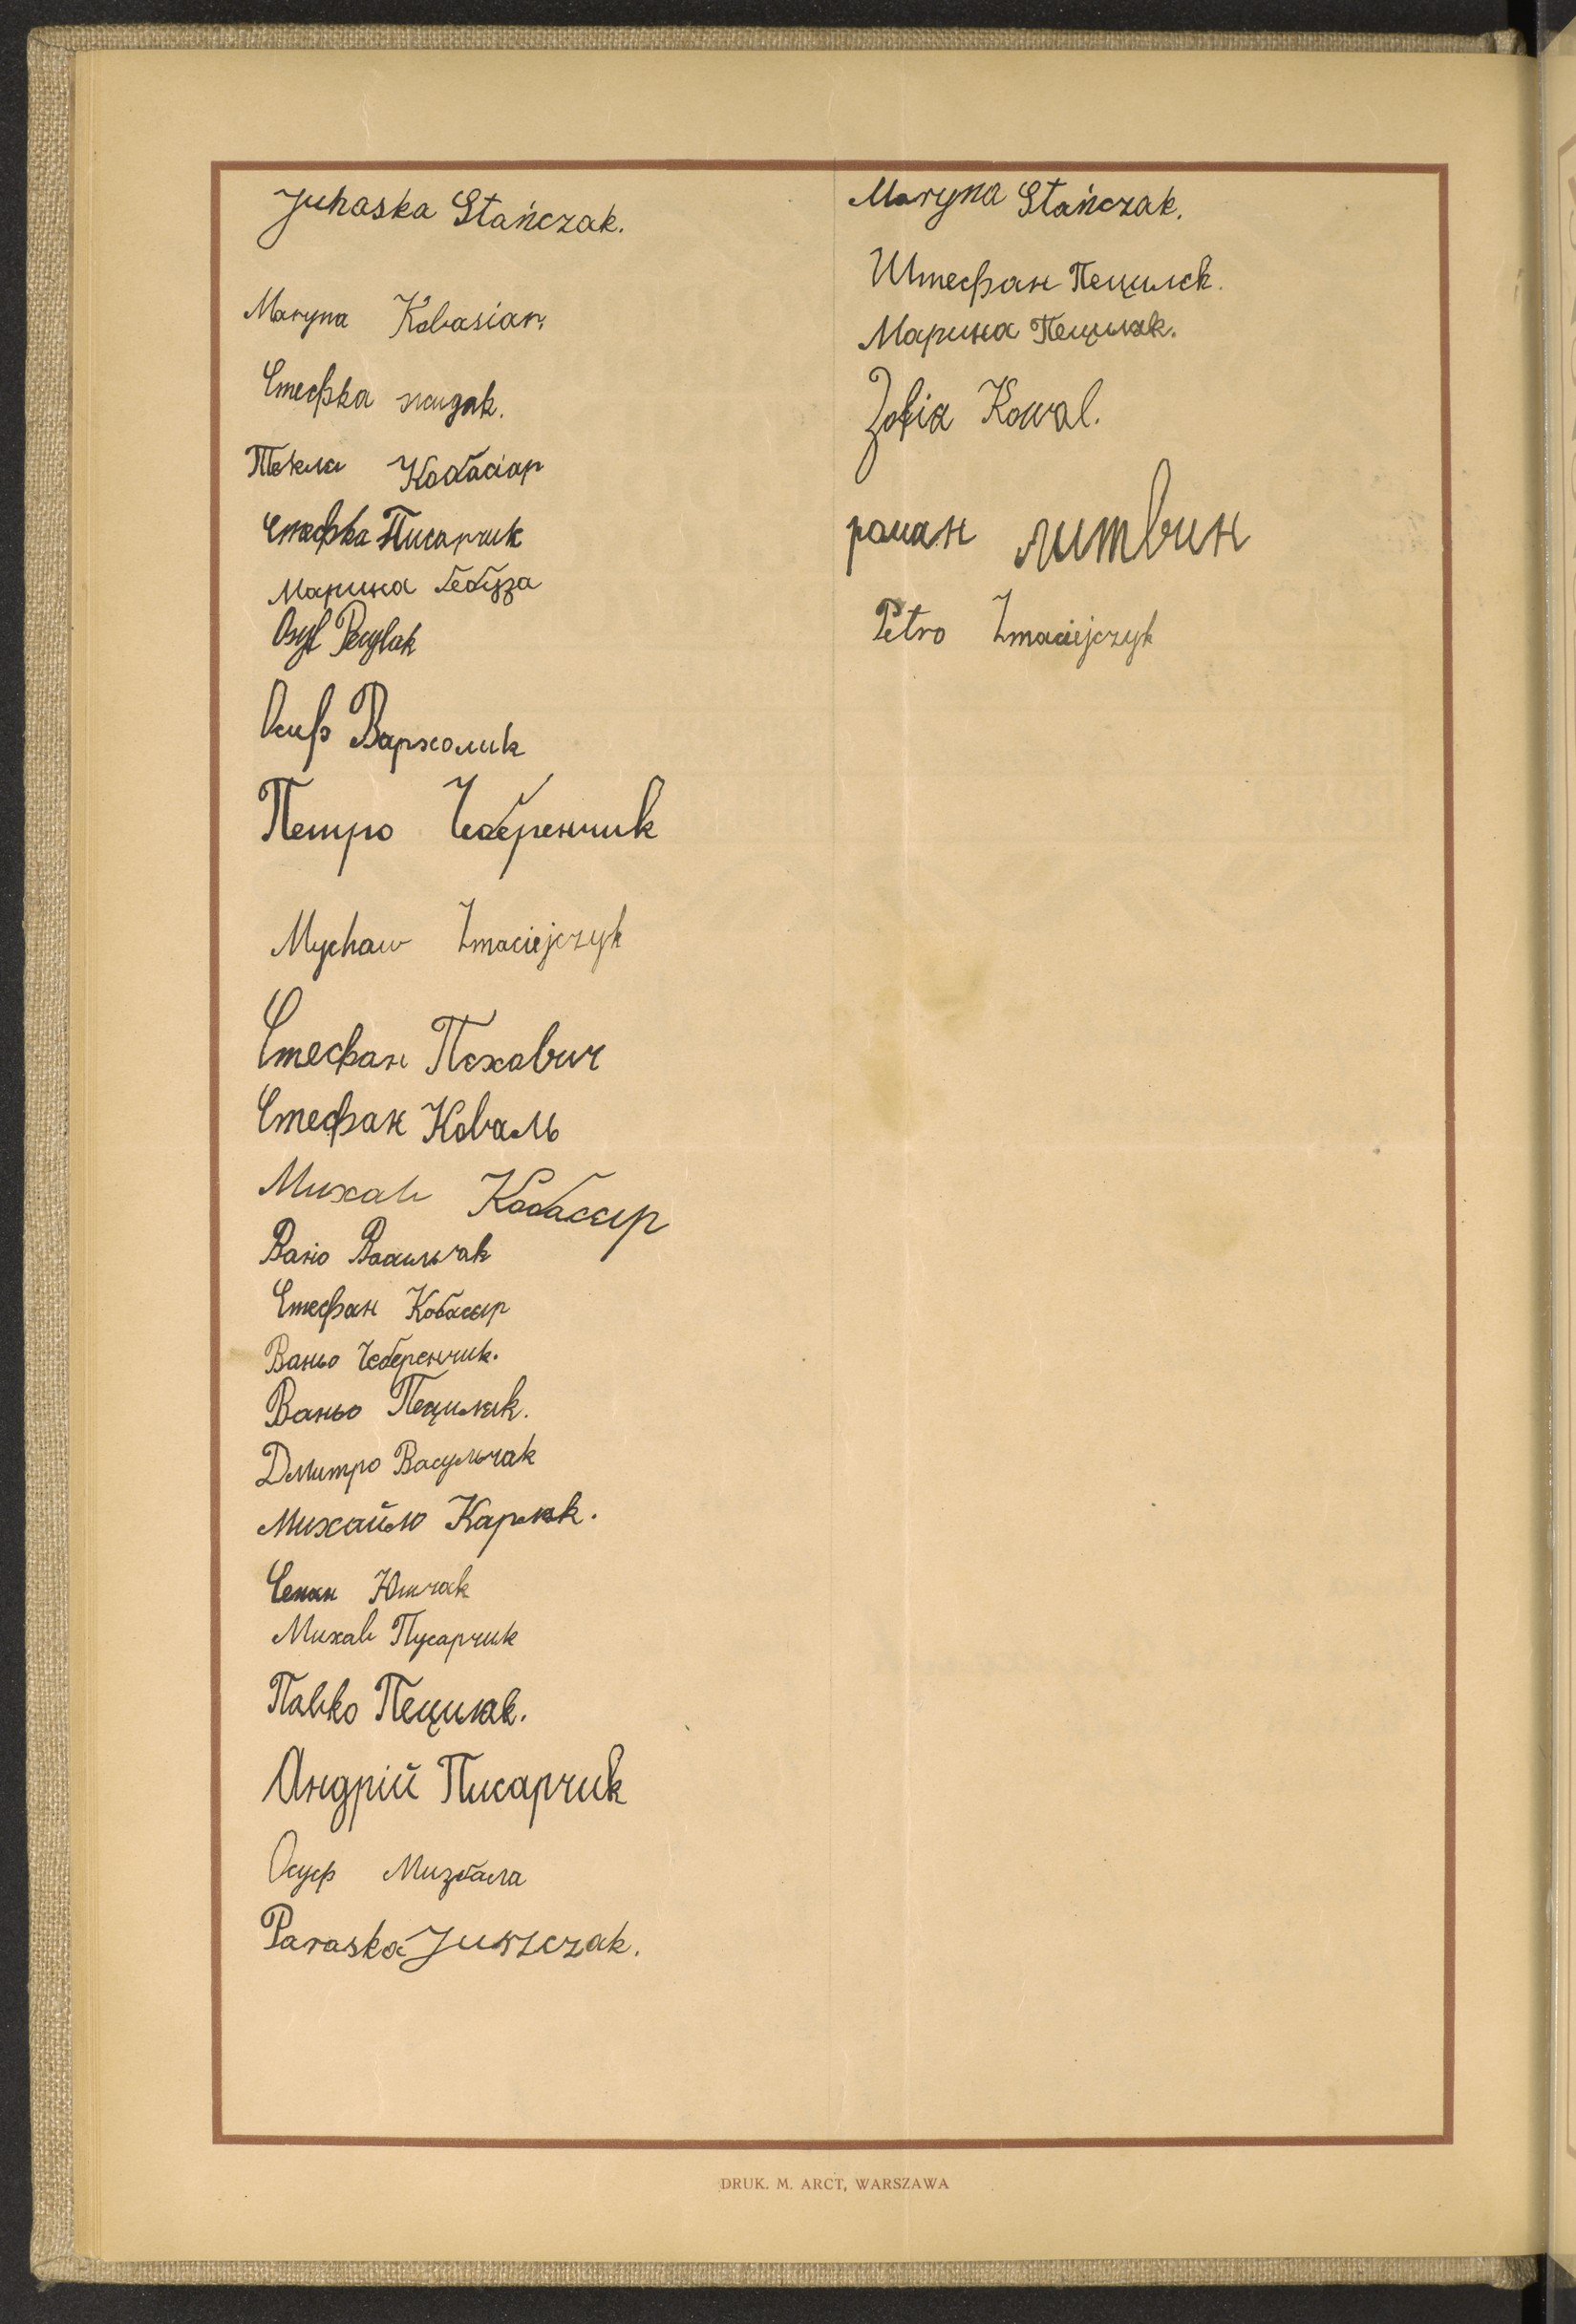 Juhaska Stańczak.
Maryna Kobasiar.
Стефка жидяк.
Текля Кобасіар
Стефка Писарчик
Марина Бебза
Osyf Pecylak
Осиф Вархолик
Петро Чеберенчик
Mychaw Zmaciejczyk
Стефан Пехович
Стефан Коваль
Михав Кобасяр
Ваньо Васильчак
Стефан Кобасяр
Ваньо Чеберенчик.
Ваньо Пециляк.
Дмитро Васульчак
Михайло Карляк.
Семан Юшчак
Михав Пусарчик
Павко Пециляк.
Андрій Писарчик
Осуф Мизбала
Paraska Juszczak.
Maryna Stańczak.
Штефан Пециляк.
Марина Пециляк.
Zofia Kowal.
роман литвин
Petro Zmaciejczyk
DRUK. M. ARCT, WARSZAWA